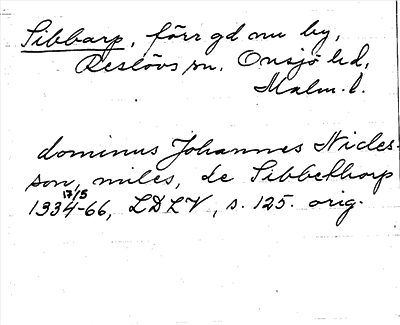 Sibbarp, förr gd nu by,
Reslövs sn. Onsjö hd,
Malm. l.
dominus Johannes Nicles-
son, miles, de Sibbethorp
17/5
1334-66, LDLV, s. 125. orig.